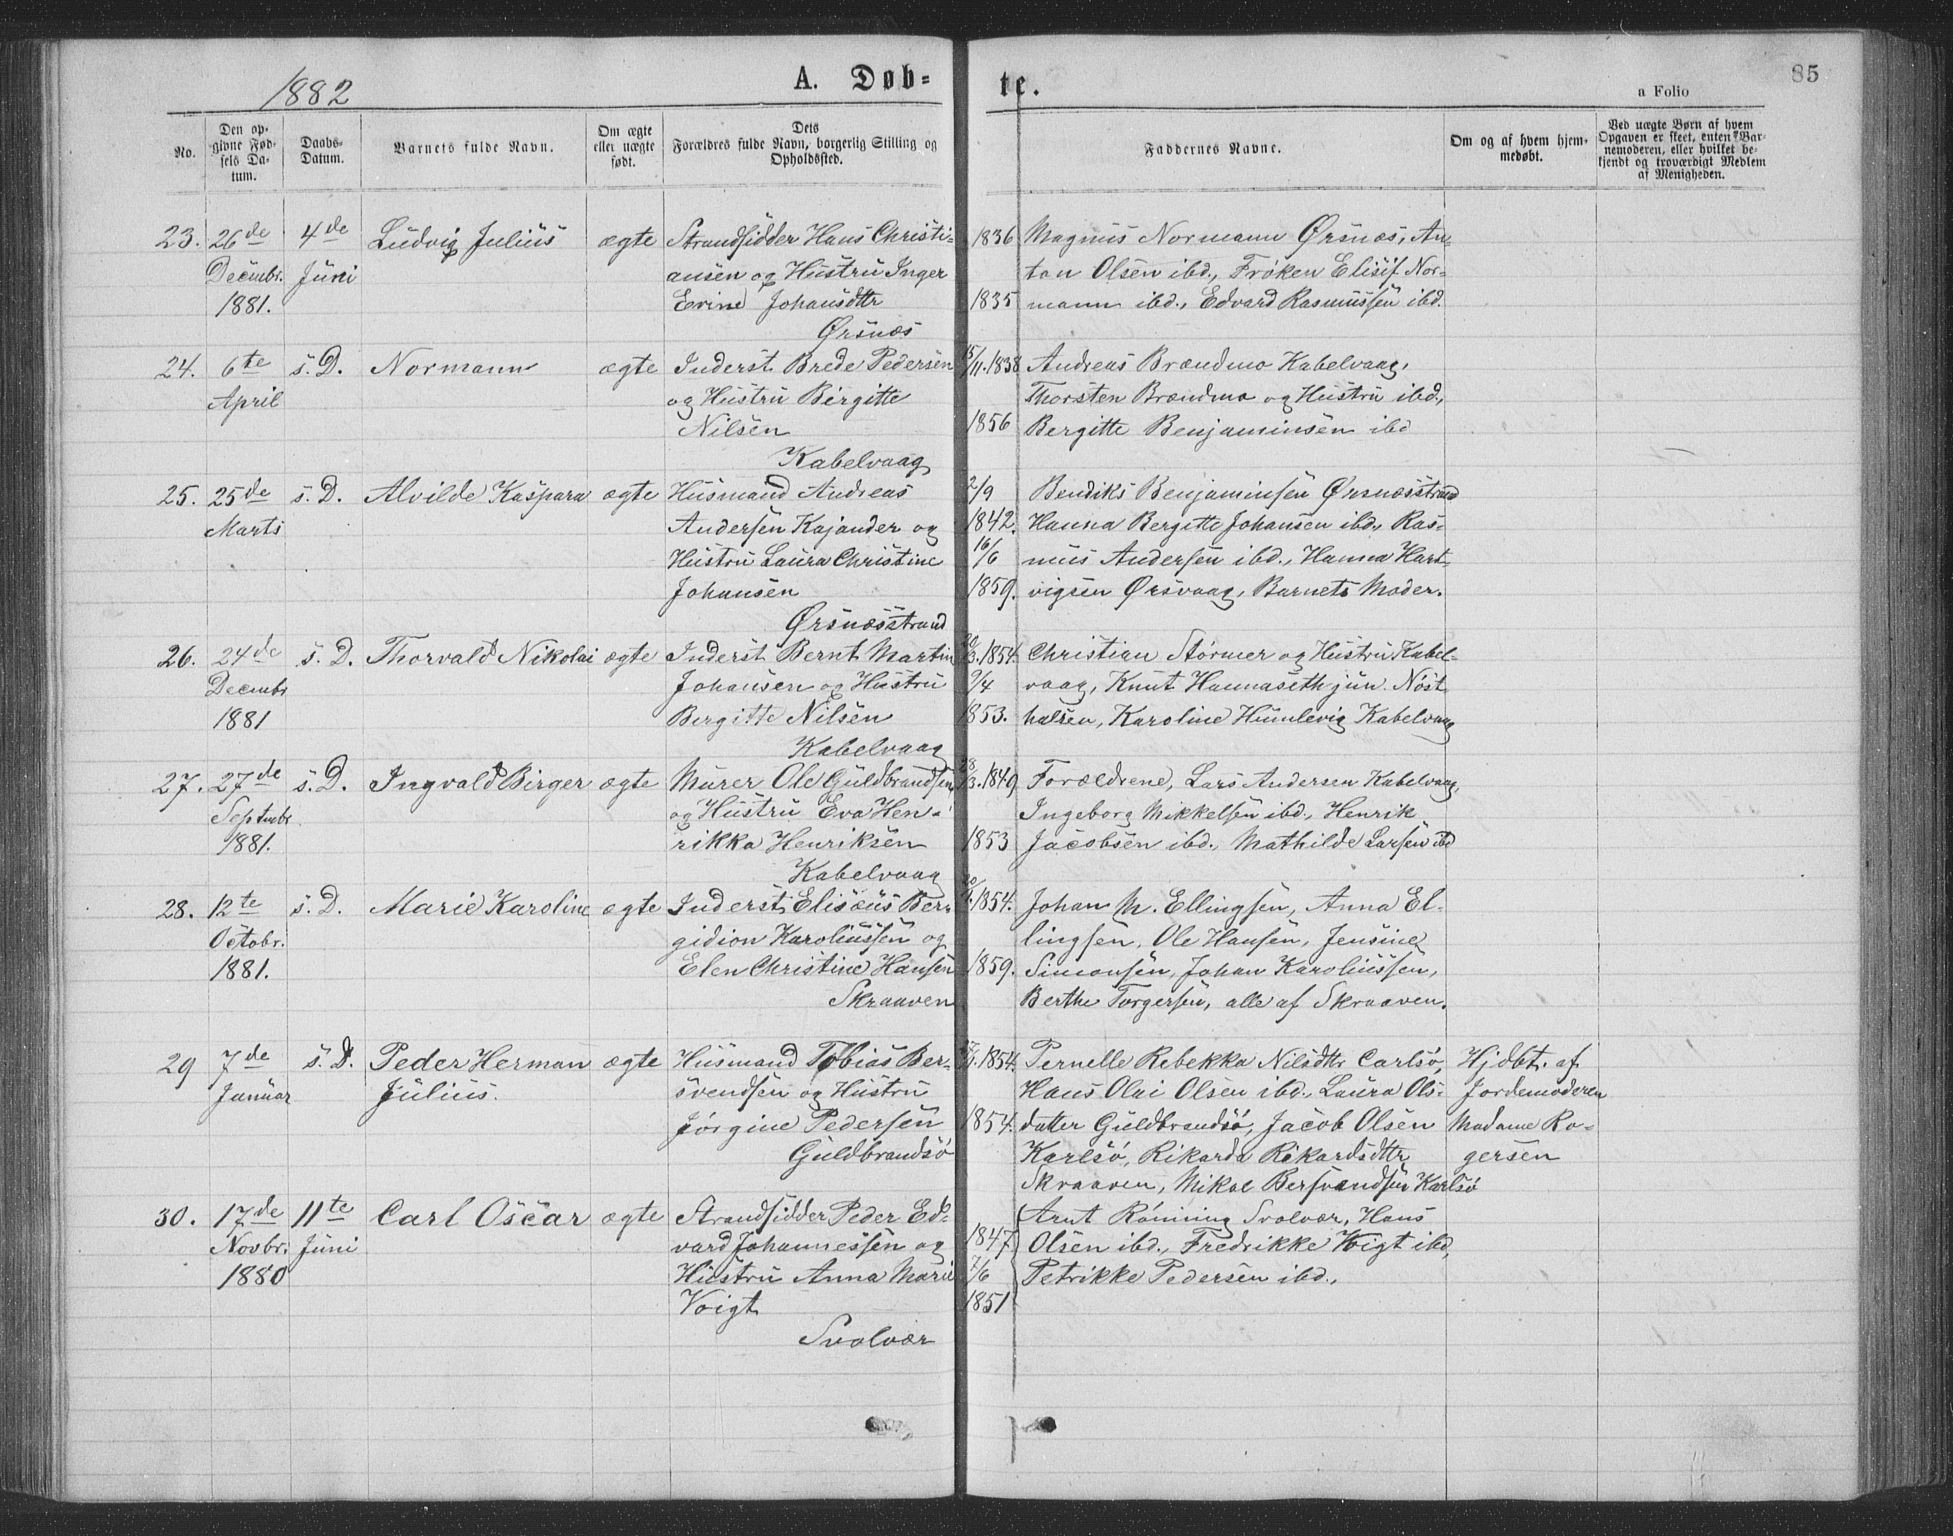 1882
A. Døb-
te.
85
a Folio
No.
Den op-
givne Fød-
sels Da-
tum.
Daabs-
Datum.
Barnets fulde Navn.
Om ægte
eller uægte
født.
Dets
Forældres fulde Navn, borgerlig Stilling og
Opholdssted.
Faddernes Navne.
Om og af hvem hjem-
medøbt.
Ved uægte Børn af hvem
Opgaven er skeet, enten Bar-
nemoderen, eller hvilket be-
kjendt og troværdigt Medlem
af Menigheden.
23. 26de 4de Ludvig Julius ægte Strandsidder Hans Christi- 1836 Magnus Normann Ørsnæs, An-
Decembr. Juni ansen og Hustru Inger ton Olsen ibd., Frøken Elisif Nor-
1881. Erine Johansdtr 1835 mann ibd., Edvard Rasmussen ibd.
Ørsnæs
24. 6te s. D. Normann ægte Inderst Brede Pedersen 15/11.1838 Andreas Brændmo Kabelvaag,
April og Hustru Birgitte Thorsten Brændmo og Hustru ibd,
Nilsen 1856 Bergitte Benjaminsen ibd
Kabelvaag
25. 25de s. D. Alvilde Kaspara ægte Husmand Andreas 2/9 Bendiks Benjaminsen Ørsnæsstrand
Marts Andersen Kajander og 1842. Hanna Bergitte Johansen ibd., Ras-
Hustru Laura Christine 16/6 mus Andersen ibd., Hanna Hart-
Johansen 1859. vigsen Ørsvaag, Barnets Moder.
Ørsnæsstrand
26. 24de s. D. Thorvald Nikolai ægte Inderst Bernt Martin 1854 Christian Størmer og Hustru Kabel-
Decembr Johansen og Hustru 9/4 vaag, Knut Hannaseth jun. Nøst
1881 Bergitte Nilsen 1853. halsen, Karoline Humlevig Kabelvaag
Kabelvaag
27. 27de s. D. Ingvald Birger ægte Murer Ole Guldbrandsen 1849 Forældrene, Lars Andersen Kabelvaag,
Septmbr. og Hustru Eva Hen- Ingeborg Mikkelsen ibd., Henrik
1881. rikka Henriksen 1853 Jacobsen ibd., Mathilde Larsen ibd
Kabelvaag
28. 12te s. D. Marie Karoline ægte Inderst Elisæus Ber- 1854. Johan M. Ellingsen, Anna El-
Octobr. gidion Karoliussen og lingsen, Ole Hansen, Jensine
1881. Elen Christine Hansen 1859. Simonsen, Johan Karoliussen,
Skraaven Berthe Torgersen, alle af Skraaven.
29 7de s. D. Peder Herman ægte Husmand Tobias Ber- 1854. Pernelle Rebekka Nilsdtr Carlsø, Hjdbt. af
Januar Julius. svendsen og Hustru Hans Olai Olsen ibd., Laura Ols- Jordemoderen
Jørgine Pedersen 1854. datter Guldbrandsø, Jacob Olsen Madame Ro-
Guldbrandsø Karlsø, Rikarda Rikardsdtr gersen
Skraaven, Mikal Bersvendsen Karlsø
30. 17de 11te Carl Oscar ægte Strandsidder Peder Ed- Arnt Rønning Svolvær, Hans
Novbr. Juni vard Johannessen og 1847 Olsen ibd., Fredrikke Voigt ibd,
1880 Hustru Anna Marie 7/6 Petrikke Pedersen ibd.,
Voigt 1851
Svolvær